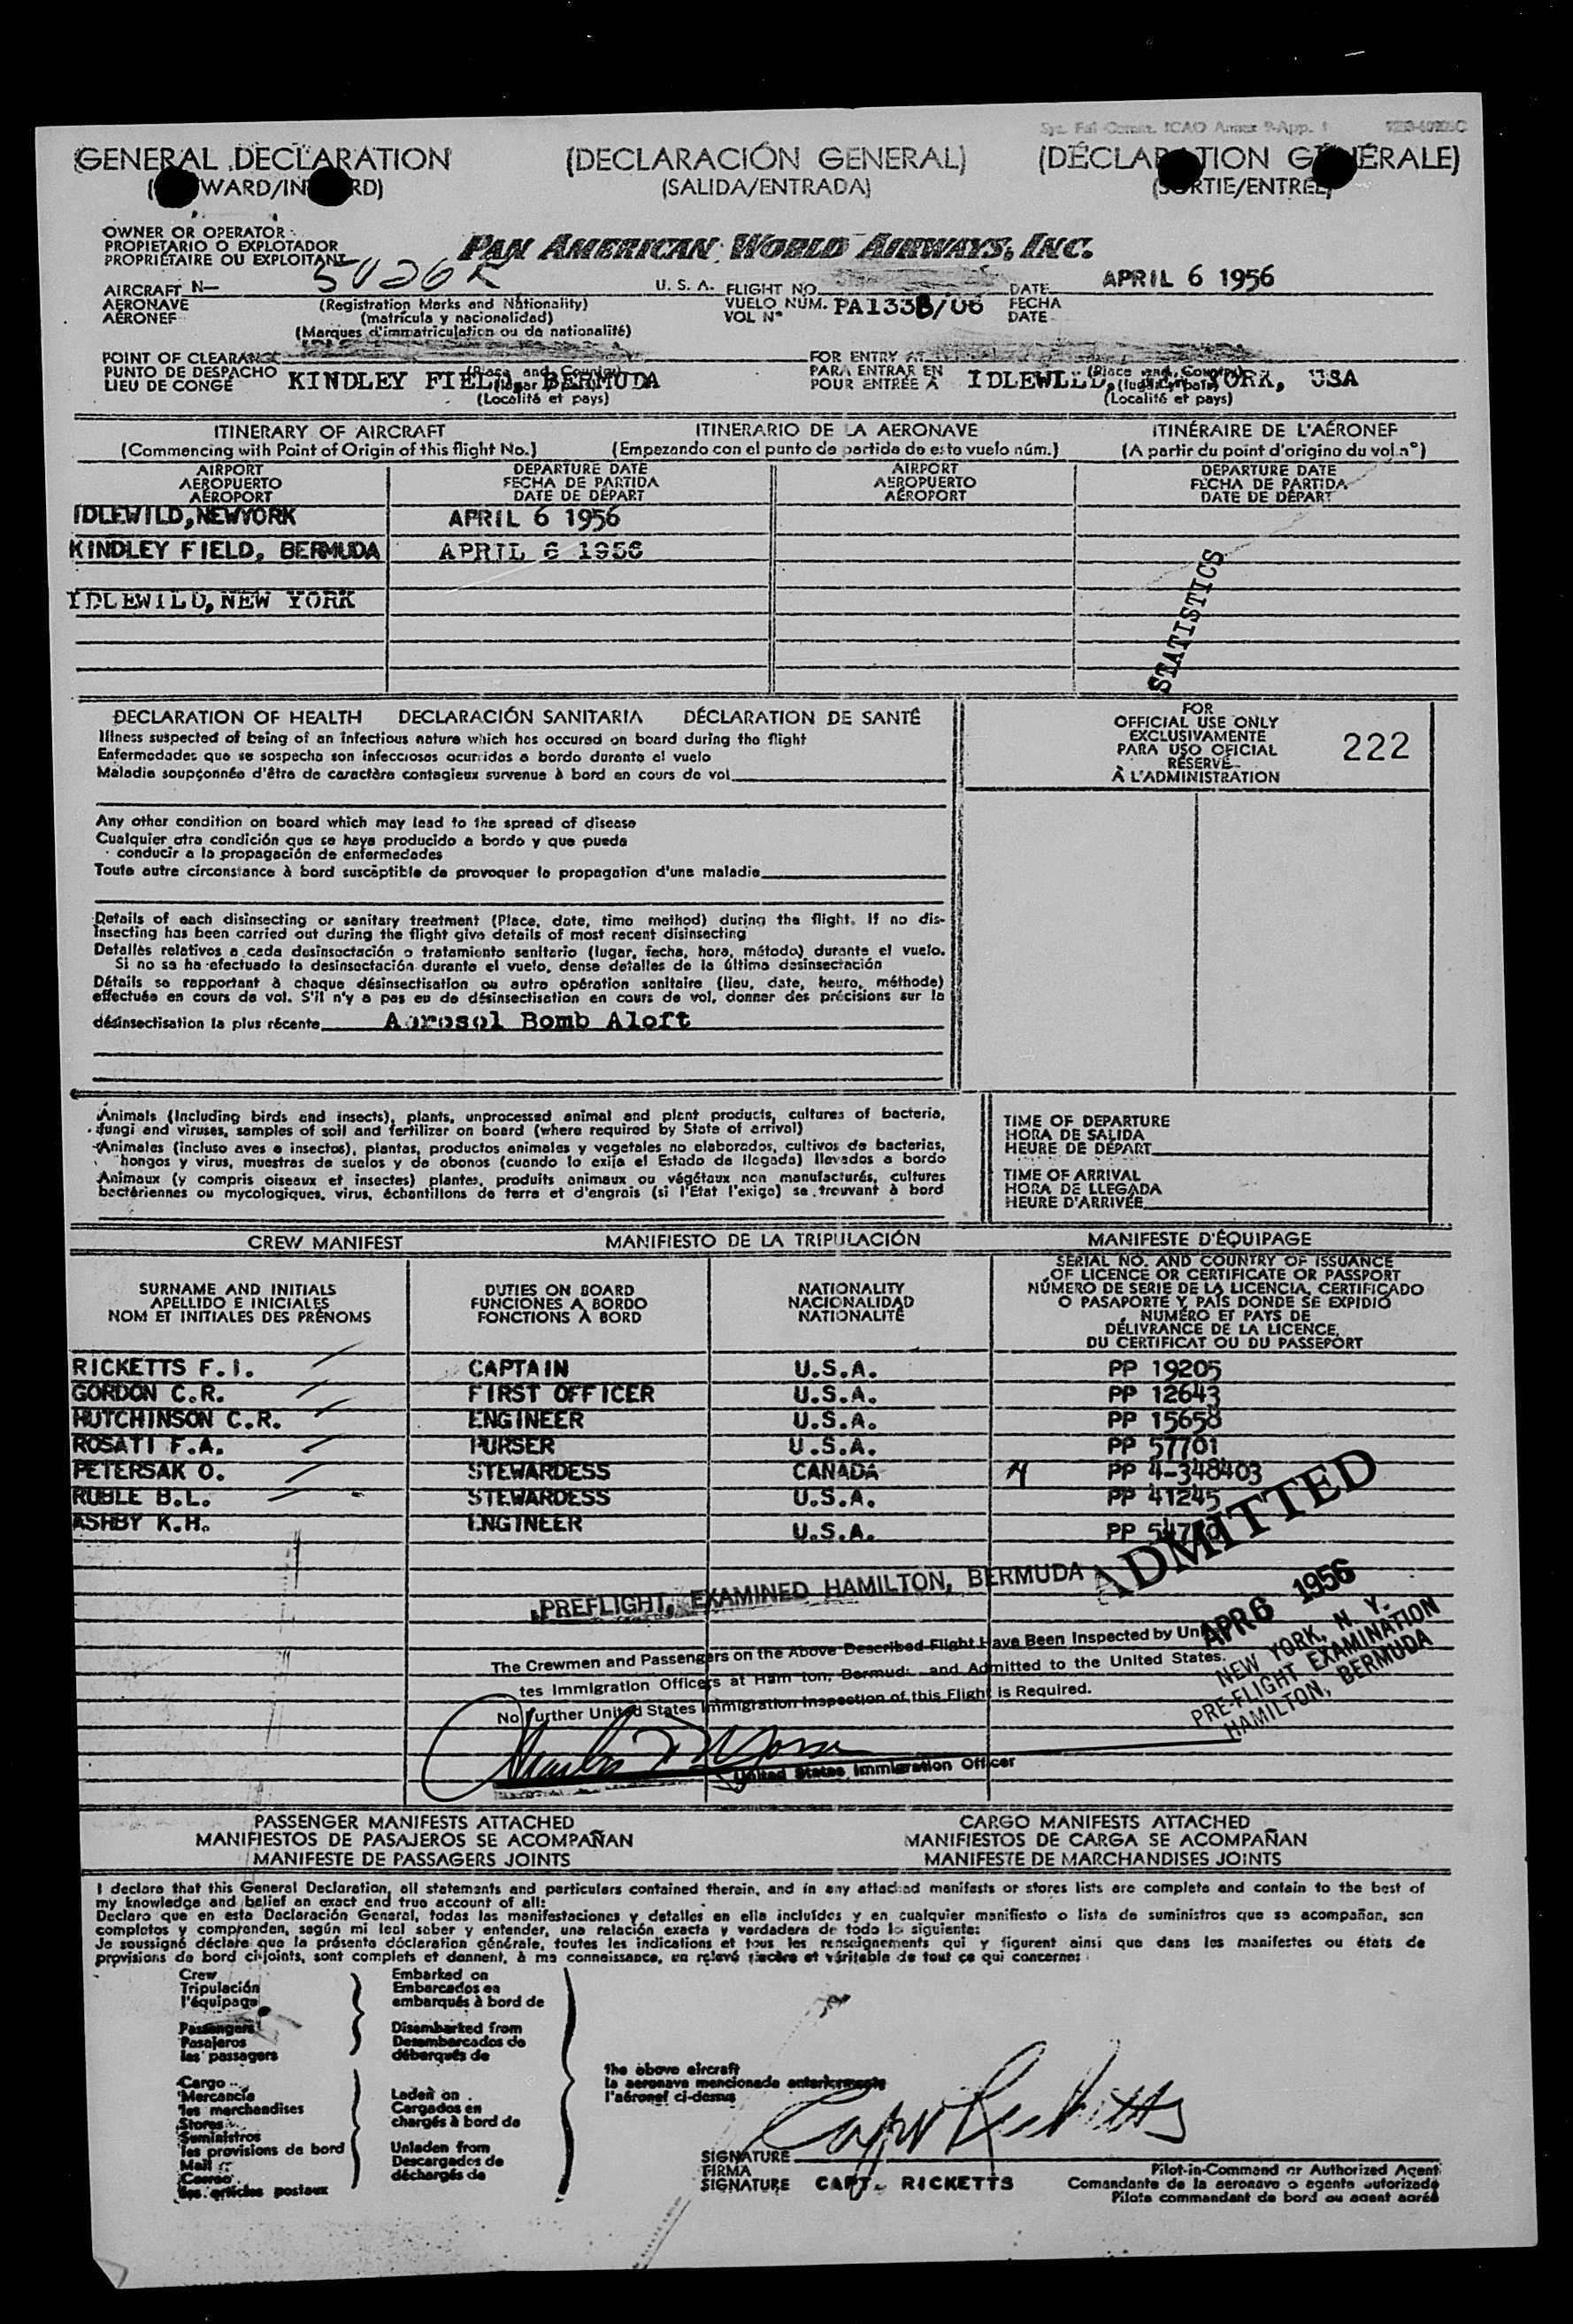 GENERAL DECLARATION (DECLARACIÓN GENERAL)
(SALIDA/ENTRADA)
OWNER OR OPERATOR
PROPIETARIO O EXPLOTADOR
PROPRIÉTAIRE OU EXPLOITANT
PAN AMERICAN WORLD AIRWAYS, INC.
AIRCRAFT N— 5026K U. S. A. FLIGHT NO. DATE APRIL 6 1956
AERONAVE (Registration Marks and Nationality) VUELO NÚM. PA133B/06 FECHA
AÉRONEF (matrícula y nacionalidad) VOL N° DATE
(Marques d'immatriculation ou de nationalité)
POINT OF CLEARANCE FOR ENTRY AT
PUNTO DE DESPACHO PARA ENTRAR EN
LIEU DE CONGÉ KINDLEY FIELD, BERMUDA POUR ENTRÉE À IDLEWILD, YORK, USA
(Localité et pays) (Localité et pays)
ITINERARY OF AIRCRAFT ITINERARIO DE LA AERONAVE ITINÉRAIRE DE L'AÉRONEF
(Commencing with Point of Origin of this flight No.) (Empezando con el punto de partida de este vuelo núm.) (A partir du point d'origine du vol n°)
AIRPORT DEPARTURE DATE AIRPORT DEPARTURE DATE
AEROPUERTO FECHA DE PARTIDA AEROPUERTO FECHA DE PARTIDA
AÉROPORT DATE DE DÉPART AÉROPORT DATE DE DÉPART
IDLEWILD, NEWYORK APRIL 6 1956
KINDLEY FIELD, BERMUDA APRIL 6 1956
IDLEWILD, NEW YORK
STATISTICS
DECLARATION OF HEALTH DECLARACIÓN SANITARIA DÉCLARATION DE SANTÉ
Illness suspected of being of an infectious nature which has occured on board during the flight
Enfermedades que se sospecha son infecciosas ocurridas a bordo durante el vuelo
Maladie soupçonnée d'être de caractère contagieux survenue à bord en cours de vol
FOR
OFFICIAL USE ONLY
EXCLUSIVAMENTE
PARA USO OFICIAL
RÉSERVÉ
À L'ADMINISTRATION
222
Any other condition on board which may lead to the spread of disease
Cualquier otra condición que se haya producido a bordo y que pueda
conducir a la propagación de enfermedades
Toute autre circonstance à bord susceptible de provoquer la propagation d'une maladie
Details of each disinsecting or sanitary treatment (Place, date, time method) during the flight. If no dis-
insecting has been carried out during the flight give details of most recent disinsecting
Detalles relativos a cada desinsectación o tratamiento sanitario (lugar, fecha, hora, método) durante el vuelo.
Si no se ha efectuado la desinsectación durante el vuelo, dense detalles de la última desinsectación
Détails se rapportant à chaque désinsectisation ou autre opération sanitaire (lieu, date, heure, méthode)
effectuée en cours de vol. S'il n'y a pas eu de désinsectisation en cours de vol, donner des précisions sur la
désinsectisation la plus récente Aerosol Bomb Aloft
Animals (Including birds and insects), plants, unprocessed animal and plant products, cultures of bacteria,
fungi and viruses, samples of soil and fertilizer on board (where required by State of arrival)
Animales (incluso aves e insectos), plantas, productos animales y vegetales no elaborados, cultivos de bacterias,
hongos y virus, muestras de suelos y de abonos (cuando lo exija el Estado de llegada) llevados a bordo
Animaux (y compris oiseaux et insectes) plantes, produits animaux ou végétaux non manufacturés, cultures
bactériennes ou mycologiques, virus, échantillons de terre et d'engrais (si l'Etat l'exige) se trouvant à bord
TIME OF DEPARTURE
HORA DE SALIDA
HEURE DE DÉPART
TIME OF ARRIVAL
HORA DE LLEGADA
HEURE D'ARRIVÉE
CREW MANIFEST MANIFIESTO DE LA TRIPULACIÓN MANIFESTE D'ÉQUIPAGE
SURNAME AND INITIALS
APELLIDO E INICIALES
NOM ET INITIALES DES PRÉNOMS
DUTIES ON BOARD
FUNCIONES A BORDO
FONCTIONS À BORD
NATIONALITY
NACIONALIDAD
NATIONALITÉ
SERIAL NO. AND COUNTRY OF ISSUANCE
OF LICENCE OR CERTIFICATE OR PASSPORT
NÚMERO DE SERIE DE LA LICENCIA, CERTIFICADO
O PASAPORTE Y PAÍS DONDE SE EXPIDIÓ
NUMÉRO ET PAYS DE
DÉLIVRANCE DE LA LICENCE,
DU CERTIFICAT OU DU PASSEPORT
RICKETTS F.I. CAPTAIN U.S.A. PP 19205
GORDON C.R. FIRST OFFICER U.S.A. PP 12643
HUTCHINSON C.R. ENGINEER U.S.A. PP 15658
ROSATI F.A. PURSER U.S.A. PP 57701
PETERSAK O. STEWARDESS CANADA PP 4-348403
RUBLE B.L. STEWARDESS U.S.A. PP 41245
ASHBY K.H. ENGINEER U.S.A. PP
ADMITTED
APR 6 1956
NEW YORK, N. Y.
PRE-FLIGHT EXAMINATION
HAMILTON, BERMUDA
PREFLIGHT, EXAMINED HAMILTON, BERMUDA
The Crewmen and Passengers on the Above Described Flight Have Been Inspected by
tes Immigration Officers at Ham ton, Bermuda and Admitted to the United States.
No Further United States Immigration Inspection of this Flight is Required.
United States Immigration Officer
PASSENGER MANIFESTS ATTACHED CARGO MANIFESTS ATTACHED
MANIFIESTOS DE PASAJEROS SE ACOMPAÑAN MANIFIESTOS DE CARGA SE ACOMPAÑAN
MANIFESTE DE PASSAGERS JOINTS MANIFESTE DE MARCHANDISES JOINTS
I declare that this General Declaration, all statements and particulars contained therein, and in any attached manifests or stores lists are complete and contain to the best of
my knowledge and belief an exact and true account of all:
Declaro que en esta Declaración General, todas las manifestaciones y detalles en ella incluídos y en cualquier manifiesto o lista de suministros que se acompañan, son
completos y comprenden, según mi leal saber y entender, una relación exacta y verdadera de todo lo siguiente:
Je soussigné déclare que la présente déclaration générale, toutes les indications et tous les renseignements qui y figurent ainsi que dans les manifestes ou états de
provisions de bord ci-joints, sont complets et donnent, à ma connaissance, un relevé sincère et véritable de tout ce qui concerne:
Crew
Tripulación
l'équipage
Passengers
Pasajeros
les passagers
Embarked on
Embarcados en
embarqués à bord de
Disembarked from
Desembarcados de
débarqués de
Cargo
Mercancía
les marchandises
Stores
Suministros
les provisions de bord
Mail
Correo
les articles postaux
Laden on
Cargados en
chargés à bord de
Unladen from
Descargados de
déchargés de
the above aircraft
la aeronave mencionada anteriormente
l'aéronef ci-dessus
Capt Ricketts
SIGNATURE
FIRMA
SIGNATURE CAPT. RICKETTS
Pilot-in-Command or Authorized Agent
Comandante de la aeronave o agente autorizado
Pilote commandant de bord ou agent agréé